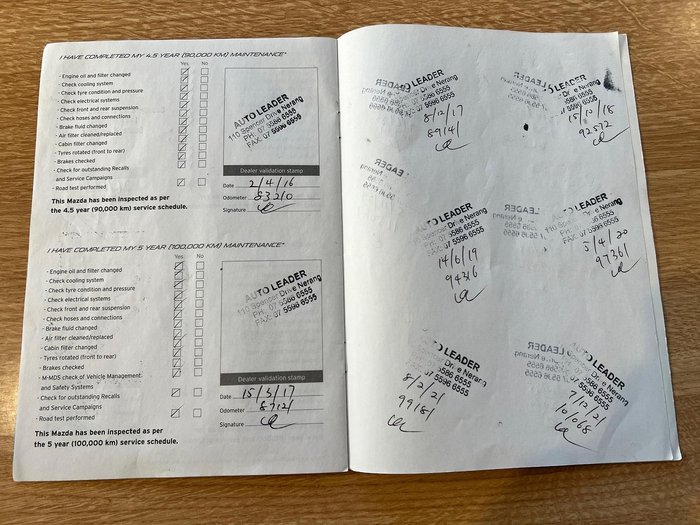 I HAVE COMPLETED MY 4.5 YEAR (90,000 KM) MAINTENANCE*
Yes No
- Engine oil and filter changed
- Check cooling system
- Check tyre condition and pressure
- Check electrical systems
- Check front and rear suspension
- Check hoses and connections
- Brake fluid changed
- Air filter cleaned/replaced
- Cabin filter changed
- Tyres rotated (front to rear)
- Brakes checked
- Check for outstanding Recalls
and Service Campaigns
- Road test performed
This Mazda has been inspected as per
the 4.5 year (90,000 km) service schedule.
AUTO LEADER
110 Spencer Drive Nerang
PH. 07 5586 6555
FAX: 07 5596 6555
Dealer validation stamp
Date 2/4/16
Odometer 83210
Signature
I HAVE COMPLETED MY 5 YEAR (100,000 KM) MAINTENANCE*
Yes No
- Engine oil and filter changed
- Check cooling system
- Check tyre condition and pressure
- Check electrical systems
- Check front and rear suspension
- Check hoses and connections
- Brake fluid changed
- Air filter cleaned/replaced
- Cabin filter changed
- Tyres rotated (front to rear)
- Brakes checked
- M-MDS check of Vehicle Management
and Safety Systems
- Check for outstanding Recalls
and Service Campaigns
- Road test performed
This Mazda has been inspected as per
the 5 year (100,000 km) service schedule.
AUTO LEADER
110 Spencer Drive Nerang
PH. 07 5586 6555
FAX: 07 5596 6555
Dealer validation stamp
Date 15/3/17
Odometer 87121
Signature
LEADER
Nerang
5586 6555
07 5596 6555
8/12/17
89141
LEADER
Nerang
5586 6555
5596 6555
15/12/18
92572
AUTO LEADER
Spencer Drive Nerang
PH. 07 5586 6555
FAX: 07 5596 6555
14/6/19
94316
AUTO LEADER
Nerang
PH. 07 5586 6555
FAX: 07 5596 6555
5/4/20
97361
LEADER
Nerang
5586 6555
07 5596 6555
8/2/21
99181
LEADER
Nerang
5586 6555
07 5596 6555
7/12/21
101068